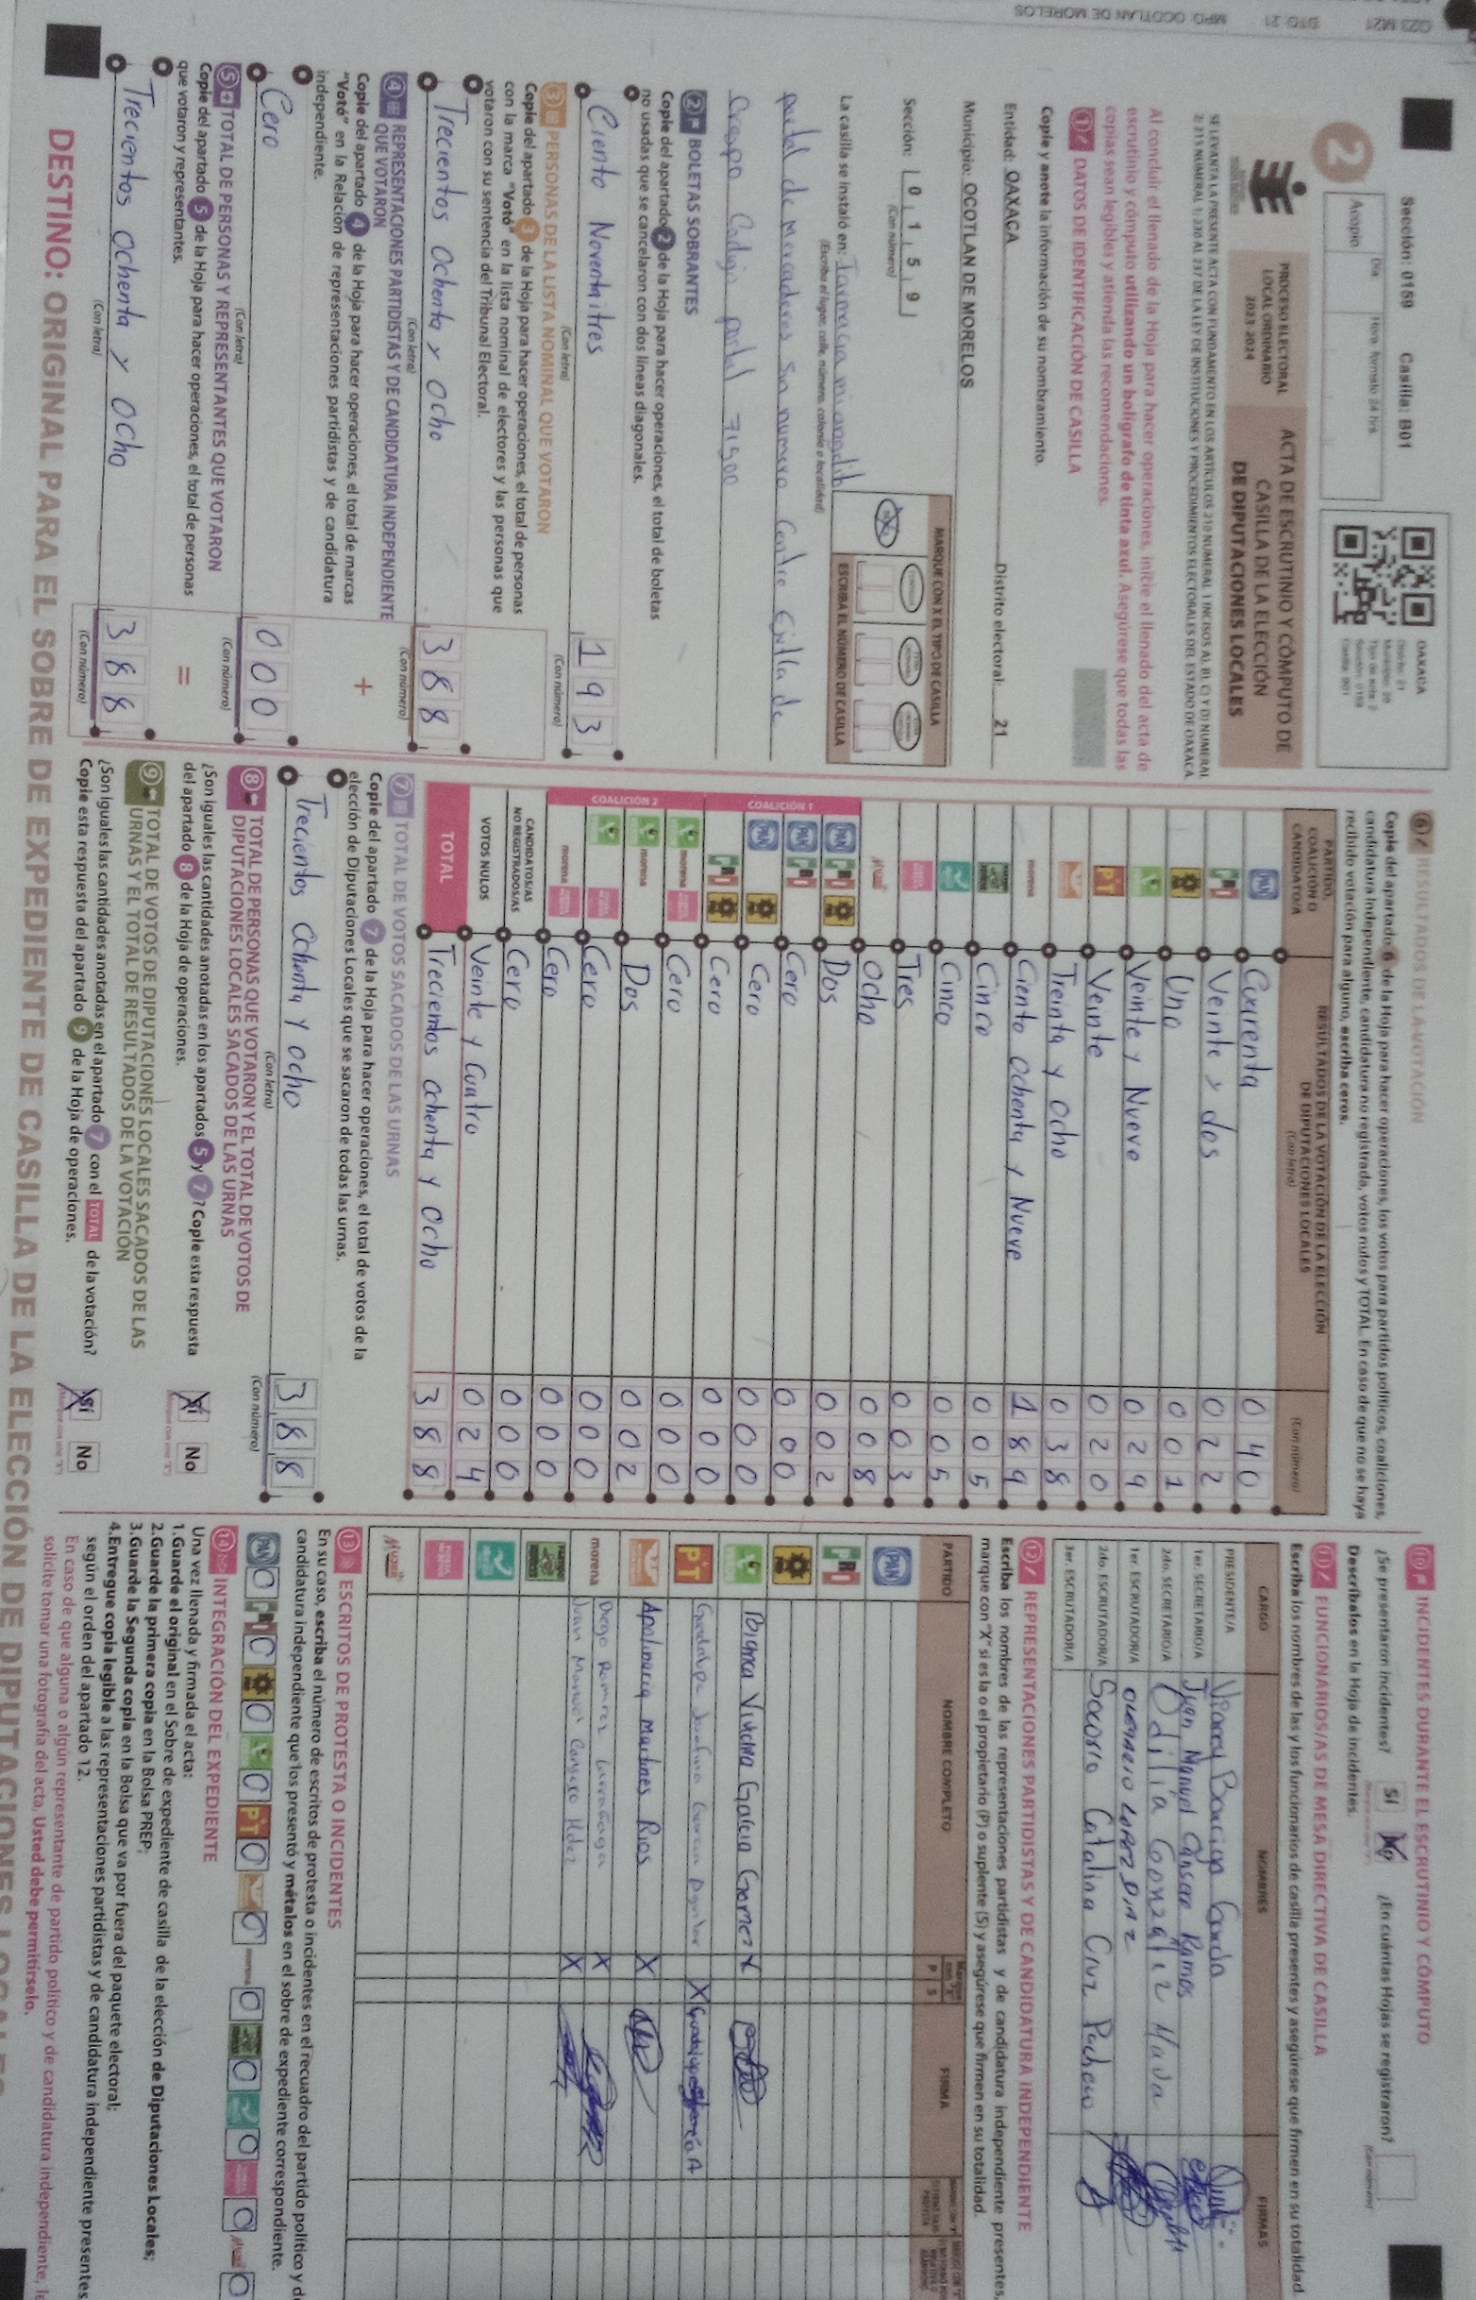 Sección: 0159 Casilla: B01
Día
Hora formato 24 hrs
2
Acopio
OAXACA
PROCESO ELECTORAL
LOCAL ORDINARIO
2023-2024
ACTA DE ESCRUTINIO Y CÓMPUTO DE
CASILLA DE LA ELECCIÓN
DE DIPUTACIONES LOCALES
Al concluir el llenado de la Hoja para hacer operaciones, inicie el llenado del acta de
escrutinio y cómputo utilizando un bolígrafo de tinta azul. Asegúrese que todas las
copias sean legibles y atienda las recomendaciones.
1 DATOS DE IDENTIFICACIÓN DE CASILLA
Copie y anote la información de su nombramiento.
Entidad: OAXACA Distrito electoral: 21
Municipio: OCOTLAN DE MORELOS
Sección: 0 1 5 9
(Con número)
MARQUE CON X EL TIPO DE CASILLA
ESCRIBA EL NÚMERO DE CASILLA
La casilla se instaló en:
(Escriba el lugar, calle, número, colonia o localidad)
portal de mercaderes sin numero Centro
portal 71500
2 BOLETAS SOBRANTES
Copie del apartado 2 de la Hoja para hacer operaciones, el total de boletas
no usadas que se cancelaron con dos líneas diagonales.
Ciento Noventaitres 193
(Con letra) (Con número)
3 PERSONAS DE LA LISTA NOMINAL QUE VOTARON
Copie del apartado 3 de la Hoja para hacer operaciones, el total de personas
con la marca "Votó" en la lista nominal de electores y las personas que
votaron con su sentencia del Tribunal Electoral.
Trecientos Ochenta y Ocho 388
(Con letra) (Con número)
4 REPRESENTACIONES PARTIDISTAS Y DE CANDIDATURA INDEPENDIENTE
QUE VOTARON
Copie del apartado 4 de la Hoja para hacer operaciones, el total de marcas
"Votó" en la Relación de representaciones partidistas y de candidatura
independiente.
+
Cero 000
(Con letra) (Con número)
5 TOTAL DE PERSONAS Y REPRESENTANTES QUE VOTARON
Copie del apartado 5 de la Hoja para hacer operaciones, el total de personas
que votaron y representantes.
=
Trecientos Ochenta y Ocho 388
(Con letra) (Con número)
6 RESULTADOS DE LA VOTACIÓN
Copie del apartado 6 de la Hoja para hacer operaciones, los votos para partidos políticos, coaliciones,
candidatura independiente, candidatura no registrada, votos nulos y TOTAL. En caso de que no se haya
recibido votación para alguno, escriba ceros.
PARTIDO, COALICIÓN O CANDIDATO/A
RESULTADOS DE LA VOTACIÓN DE LA ELECCIÓN DE DIPUTACIONES LOCALES
(Con letra) (Con número)
PAN Cuarenta 040
PRI Veinte y dos 022
Uno 001
Veinte y Nueve 029
PT Veinte 020
Treinta y Ocho 038
morena Ciento Ochenta y Nueve 189
Cinco 005
Cinco 005
Tres 003
Ocho 008
COALICIÓN 1
PAN PRI Dos 002
PAN PRI Cero 000
PAN Cero 000
PRI Cero 000
COALICIÓN 2
morena Cero 000
morena Dos 002
Cero 000
morena Cero 000
CANDIDATOS/AS NO REGISTRADOS/AS Cero 000
VOTOS NULOS Veinte y Cuatro 024
TOTAL Trecientos Ochenta y Ocho 388
7 TOTAL DE VOTOS SACADOS DE LAS URNAS
Copie del apartado 7 de la Hoja para hacer operaciones, el total de votos de la
elección de Diputaciones Locales que se sacaron de todas las urnas.
Trecientos Ochenta y Ocho 388
(Con letra) (Con número)
8 TOTAL DE PERSONAS QUE VOTARON Y EL TOTAL DE VOTOS DE
DIPUTACIONES LOCALES SACADOS DE LAS URNAS
¿Son iguales las cantidades anotadas en los apartados 5 y 7? Copie esta respuesta
del apartado 8 de la Hoja de operaciones.
Sí No
9 TOTAL DE VOTOS DE DIPUTACIONES LOCALES SACADOS DE LAS
URNAS Y EL TOTAL DE RESULTADOS DE LA VOTACIÓN
¿Son iguales las cantidades anotadas en el apartado 7 con el TOTAL de la votación?
Copie esta respuesta del apartado 9 de la Hoja de operaciones.
Sí No
10 INCIDENTES DURANTE EL ESCRUTINIO Y CÓMPUTO
¿Se presentaron incidentes? Sí No ¿En cuántas Hojas se registraron?
Descríbalos en la Hoja de incidentes.
11 FUNCIONARIOS/AS DE MESA DIRECTIVA DE CASILLA
Escriba los nombres de las y los funcionarios de casilla presentes y asegúrese que firmen en su totalidad.
CARGO NOMBRES FIRMAS
PRESIDENTE/A
1er. SECRETARIO/A Juan Manuel Ramos
2do. SECRETARIO/A Odilia
1er. ESCRUTADOR/A LOPEZ DIAZ
2do. ESCRUTADOR/A Socorro Catalina Cruz Pacheco
3er. ESCRUTADOR/A
12 REPRESENTACIONES PARTIDISTAS Y DE CANDIDATURA INDEPENDIENTE
Escriba los nombres de las representaciones partidistas y de candidatura independiente presentes,
marque con "X" si es la o el propietario (P) o suplente (S) y asegúrese que firmen en su totalidad.
PARTIDO NOMBRE COMPLETO P S FIRMA
PAN
PRI
Garcia Gomez X
PT Guadalupe Garcia X
Martines Rios X
morena Diego Ramirez X
Juan Manuel X
13 ESCRITOS DE PROTESTA O INCIDENTES
En su caso, escriba el número de escritos de protesta o incidentes en el recuadro del partido político y de
candidatura independiente que los presentó y métalos en el sobre de expediente correspondiente.
PAN 0 PRI 0 0 0 PT 0 0 morena 0 0 0 0 0
14 INTEGRACIÓN DEL EXPEDIENTE
Una vez llenada y firmada el acta:
1. Guarde el original en el Sobre de expediente de casilla de la elección de Diputaciones Locales;
2. Guarde la primera copia en la Bolsa PREP;
3. Guarde la Segunda copia en la Bolsa que va por fuera del paquete electoral;
4. Entregue copia legible a las representaciones partidistas y de candidatura independiente presentes
según el orden del apartado 12.
En caso de que alguna o algún representante de partido político y de candidatura independiente, le
solicite tomar una fotografía del acta, Usted debe permitírselo.
DESTINO: ORIGINAL PARA EL SOBRE DE EXPEDIENTE DE CASILLA DE LA ELECCIÓN DE DIPUTACIONES LOCALES
MPO: OCOTLAN DE MORELOS